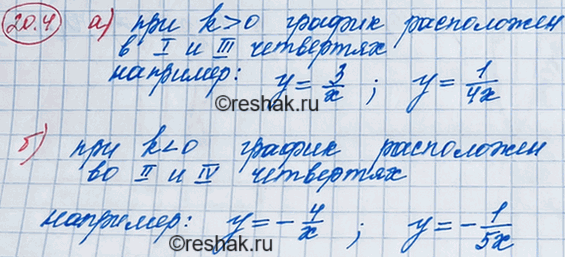 20.4 а) при k>0 график расположен
в I и III четвертях
например: y = 3/x ; y = 1/4x
©reshak.ru
б) при k<0 график расположен
во II и IV четвертях
например: y = - 4/x ; y = - 1/5x
©reshak.ru